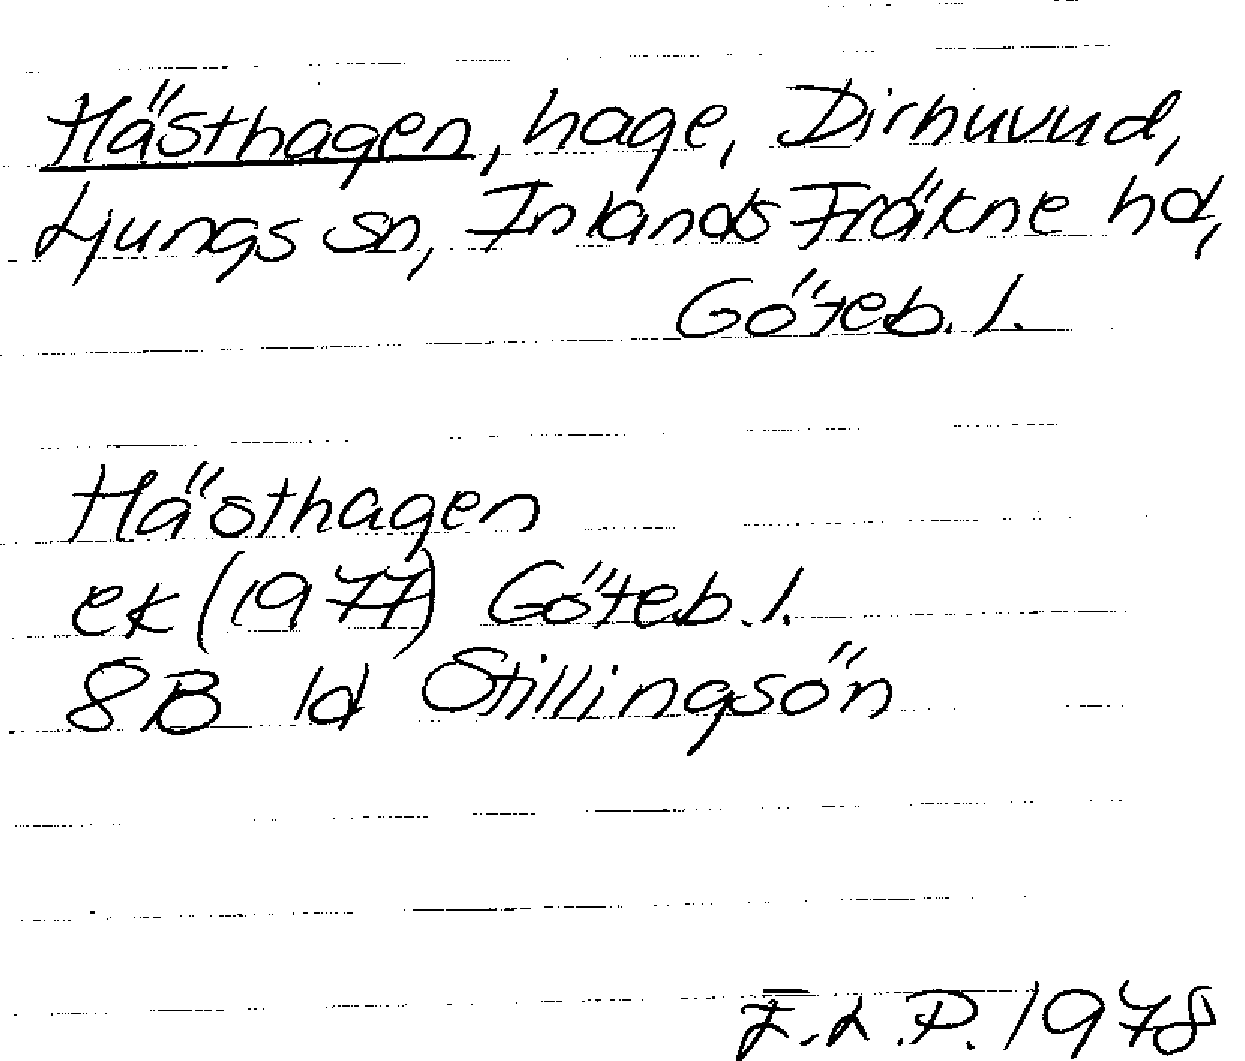 Hästhagen, hage, Dirhuvud,
Ljungs sn, Inlands Fräkne hd,
Göteb. l.
Hästhagen
ek (1977) Göteb. l.
8B 1d Stillingsön
E.L.P. 1978